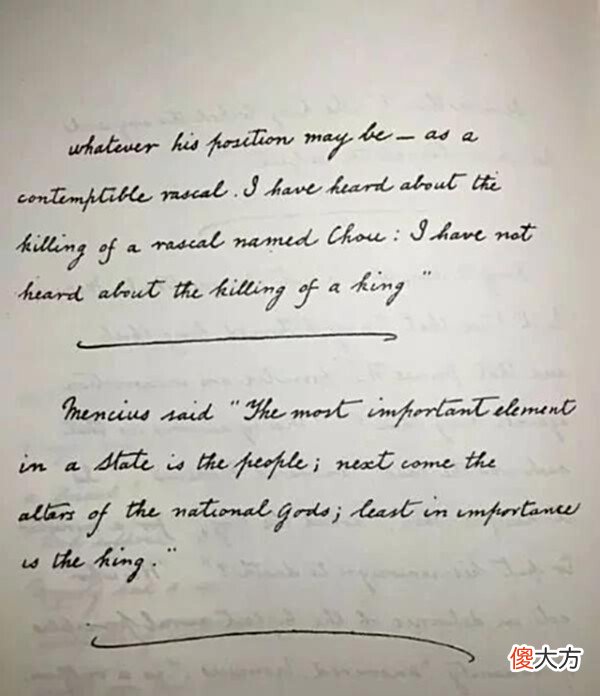 whatever his position may be — as a
contemptible rascal. I have heard about the
killing of a rascal named Chou: I have not
heard about the killing of a king"
Mencius said "The most important element
in a State is the people; next come the
altars of the national Gods; least in importance
is the king."
傻大方